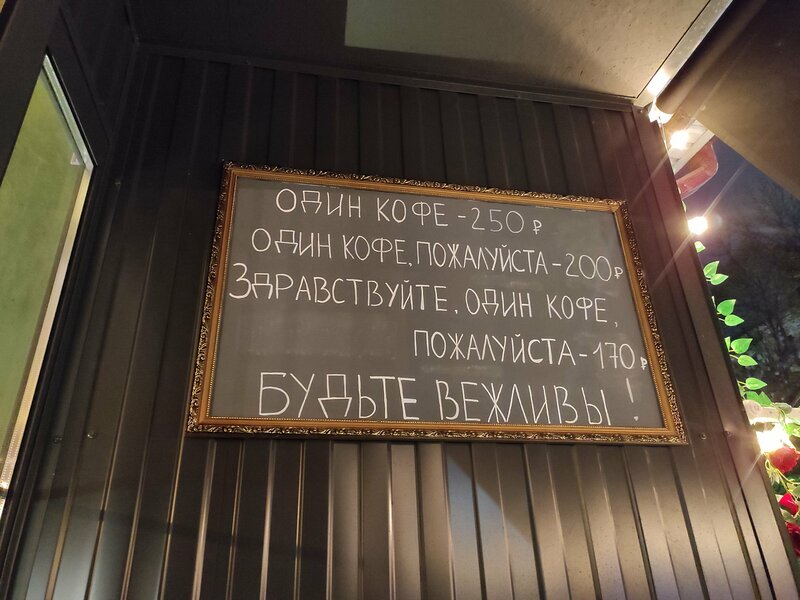 ОДИН КОФЕ - 250 ₽
ОДИН КОФЕ, ПОЖАЛУЙСТА - 200 ₽
ЗДРАВСТВУЙТЕ, ОДИН КОФЕ,
ПОЖАЛУЙСТА - 170 ₽
БУДЬТЕ ВЕЖЛИВЫ!